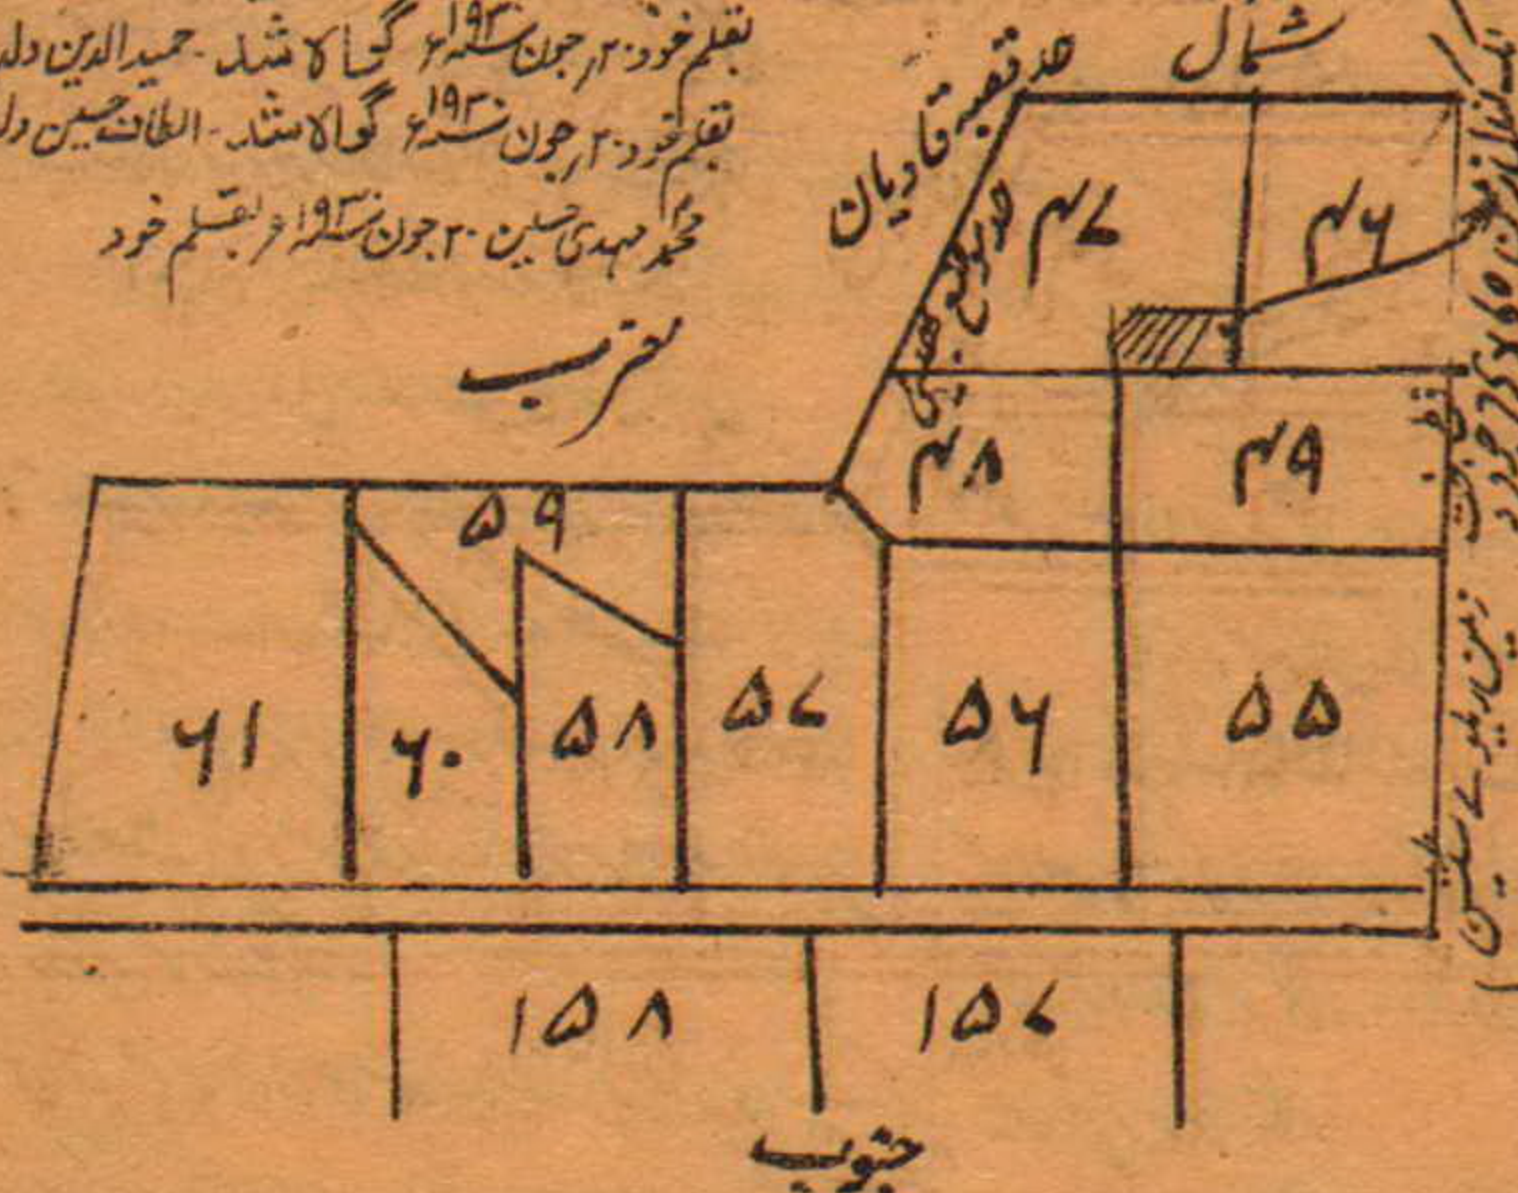 بقلم خود ۲۰ جون ۱۹۳۰ء گواہ شد - حمید الدین ولد
بقلم خود ۲۰ جون ۱۹۳۰ء گواہ شد - الطاف حسین ولد
محمد مہدی حسین ۲۰ جون ۱۹۳۰ء بقلم خود
شمال
حد قصبہ قادیان
۴۷
۴۶
مغرب
۴۸
۴۹
۵۹
۶۱
۶۰
۵۸
۵۷
۵۶
۵۵
زمین ریلوے
۱۵۸
۱۵۷
جنوب